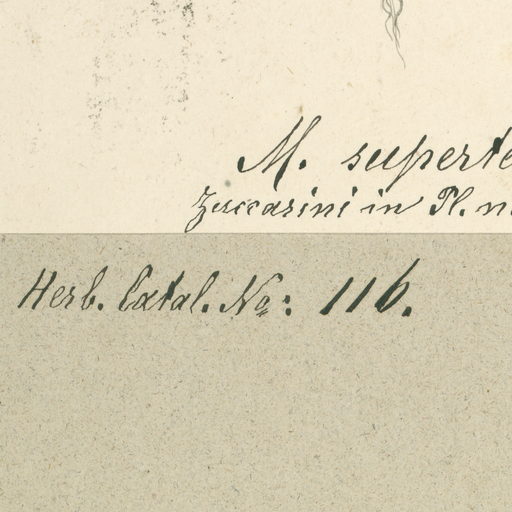 M. superte
Zuccarini in Pl. n.
Herb. Catal. No: 116.